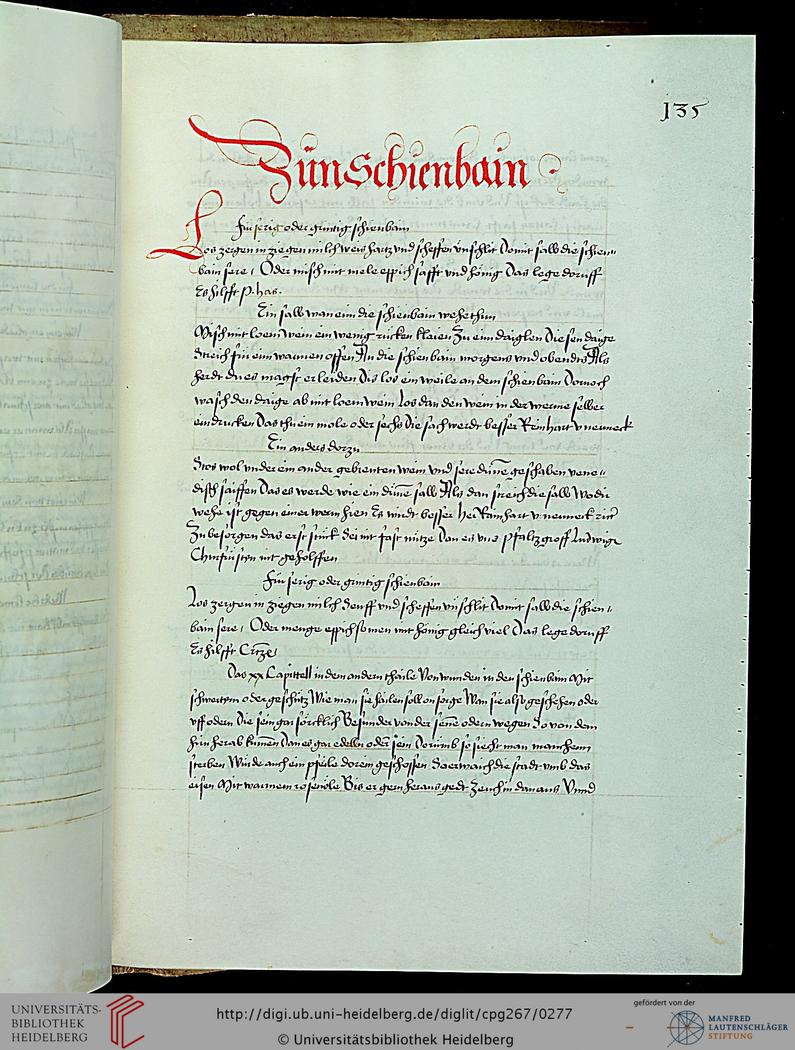 135
Zun Schienbain
Fur serig oder grintig schienbain
Los zergen in ziegen milch weis hartz vnd scheffen vnschlit Domit salb die schien-
bain sere / Oder misch mit mele eppich safft vnd honig Das lege doruff
Es hilfft p. has.
Ein salb wan eim die schienbain wehe thun
Misch mit loem wein ein wenig rucken kleien Zu eim daiglen Die sen daige
Streich fur eim warmen offen An die schienbain morgens vnd obendts Als
herdt du es magst erleiden Dis los ein weile an dem schienbain Dornoch
wasch den daige ab mit loem wein Los dan den wein in der werme selber
eindrucken Das thu ein mole oder sechs Die sach werdt besser Reinhart v neuneck
Ein anders dorzu
Stos wol vnder ein ander gebrenten wein Vnd sere dunne geschaben vene-
disch saiffen Das es werde wie ein dunne salb Als dan streich die salb Wo dir
wehe ist gegen einer warm hien Es wirdt besser her Rainhart v neuneck rit
Zu besorgen das erst stuck sei mit fast nutze Dan es vns pfaltzgroff Ludwig
Churfursten nit geholffen
Fur serig oder grintig schienbain
Los zergen in ziegen milch senff vnd scheffen vnschlit Domit salb die schien-
bain sere / Oder menge eppich somen mit honig gleich viel Das lege doruff
Es hilfft
Das xx Capittell in dem andern thaile Von wunden in den schienbain Mit
schwertern oder geschutz Wie man sie hailen soll on sorge Wan sie also geschehen oder
vff odern Die sein gar sorcklich Besunder von der senne odern wegen So von dem
hirn herab kumen Dan es gar edelln oder sein Dorumb so siecht man manchem
sterben Wurde auch ein pfeile dorein geschossen So erwaich die stadt vmb das
eisen Mit warmem rosenole Bis er gern heraus gedt Zeuch in dan aus Vnnd
UNIVERSITÄTS-
BIBLIOTHEK
HEIDELBERG
http://digi.ub.uni-heidelberg.de/diglit/cpg267/0277
© Universitätsbibliothek Heidelberg
gefördert von der
MANFRED
LAUTENSCHLÄGER
STIFTUNG